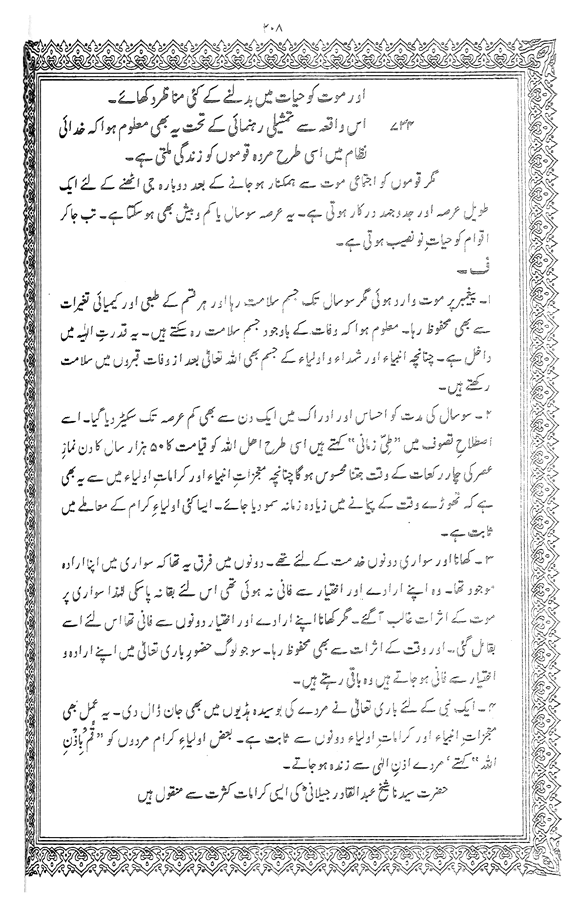 ۲۰۸
اور موت کو حیات میں بدلنے کے کئی مناظر دکھائے۔
۷۳۴ اس واقعہ سے تمثیلی رہنمائی کے تحت یہ بھی معلوم ہوا کہ خدائی
نظام میں اسی طرح مردہ قوموں کو زندگی ملتی ہے۔
مگر قوموں کو اجتماعی موت سے ہمکنار ہو جانے کے بعد دوبارہ جی اٹھنے کے لئے ایک
طویل عرصہ اور جدوجہد درکار ہوتی ہے۔ یہ عرصہ سو سال یا کم و بیش بھی ہو سکتا ہے۔ تب جا کر
اقوام کو حیاتِ نو نصیب ہوتی ہے۔
ف ۔
۱۔ پیغمبر پر موت وارد ہوئی مگر سو سال تک جسم سلامت رہا اور ہر قسم کے طبعی اور کیمیائی تغیرات
سے بھی محفوظ رہا۔ معلوم ہوا کہ وفات کے باوجود جسم سلامت رہ سکتے ہیں۔ یہ قدرتِ الٰہیہ میں
داخل ہے۔ چنانچہ انبیاء اور شہداء و اولیاء کے جسم بھی اللہ تعالیٰ بعد از وفات قبروں میں سلامت
رکھتے ہیں۔
۲۔ سو سال کی مدت کو احساس اور ادراک میں ایک دن سے بھی کم عرصہ تک سکیڑ دیا گیا۔ اسے
اصطلاحِ تصوف میں ”طیّ زمانی“ کہتے ہیں اسی طرح اھل اللہ کو قیامت کا ۵۰ ہزار سال کا دن نمازِ
عصر کی چار رکعات کے وقت جتنا محسوس ہو گا چنانچہ معجزاتِ انبیاء اور کراماتِ اولیاء میں سے یہ بھی
ہے کہ تھوڑے وقت کے پیمانے میں زیادہ زمانہ سمو دیا جائے۔ ایسا کئی اولیاءِ کرام کے معاملے میں
ثابت ہے۔
۳۔ کھانا اور سواری دونوں خدمت کے لئے تھے۔ دونوں میں فرق یہ تھا کہ سواری میں اپنا ارادہ
موجود تھا۔ وہ اپنے ارادے اور اختیار سے فانی نہ ہوئی تھی اس لئے بقا نہ پا سکی لہٰذا سواری پر
موت کے اثرات غالب آ گئے۔ مگر کھانا اپنے ارادے اور اختیار دونوں سے فانی تھا اس لئے اسے
بقا مل گئی۔ اور وقت کے اثرات سے بھی محفوظ رہا۔ سو جو لوگ حضورِ باری تعالیٰ میں اپنے ارادہ و
اختیار سے فانی ہو جاتے ہیں وہ باقی رہتے ہیں۔
۴۔ ایک نبی کے لئے باری تعالیٰ نے مردے کی بوسیدہ ہڈیوں میں بھی جان ڈال دی۔ یہ عمل بھی
معجزاتِ انبیاء اور کراماتِ اولیاء دونوں سے ثابت ہے۔ بعض اولیاءِ کرام مردوں کو ”قُمْ بِاِذْنِ
اللہ“ کہتے‘ مردے اذنِ الٰہی سے زندہ ہو جاتے۔
حضرت سیدنا شیخ عبدالقادر جیلانیؒ کی ایسی کرامات کثرت سے منقول ہیں